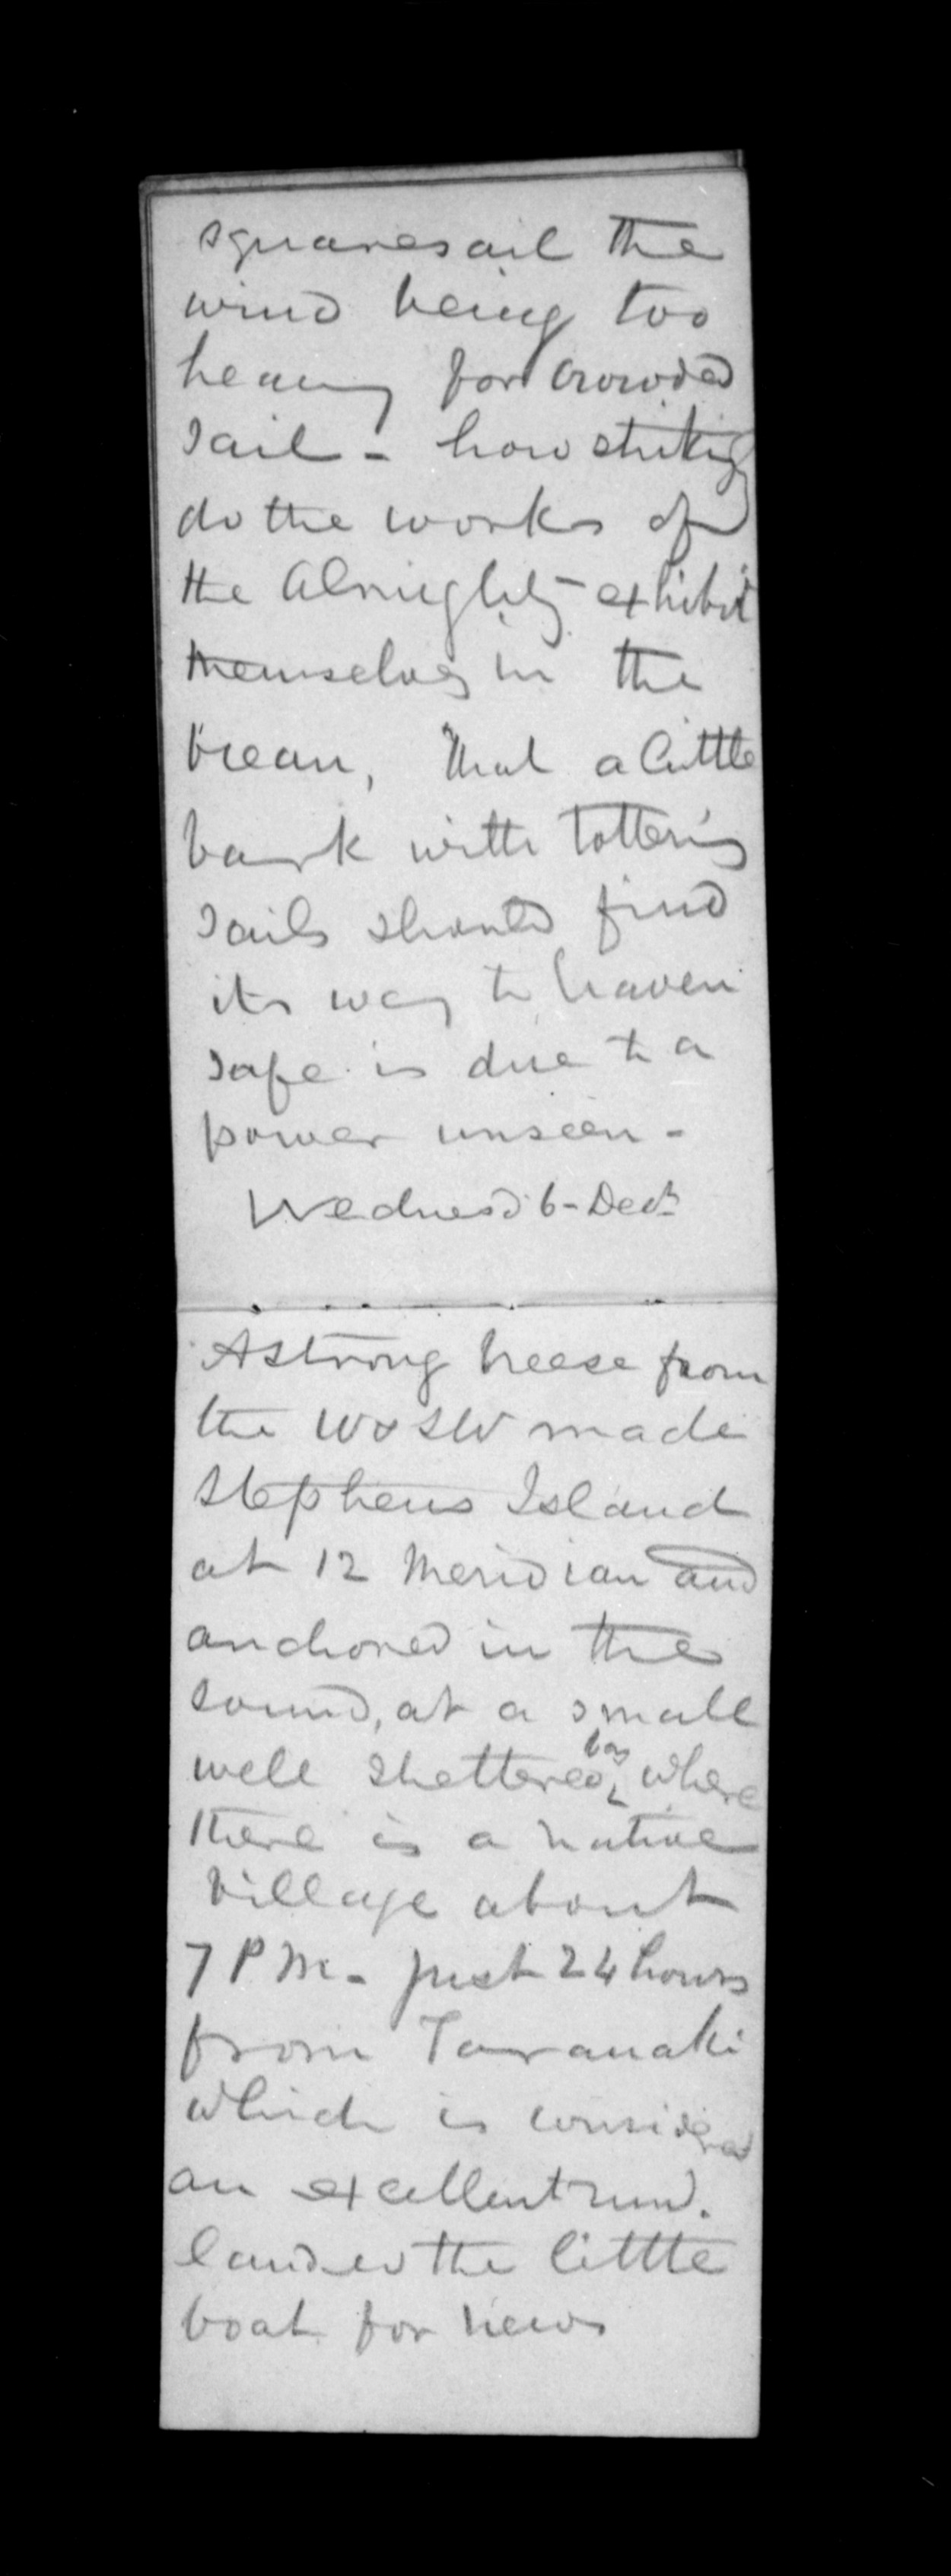 squaresail the
wind being too
heavy for crowded
sail - how striking
do the works of
the Almighty exhibit
themselves in the
Ocean, that a little
bark with tottering
sails should find
its way to haven
safe is due to a
power unseen -
Wednesd 6 - Decr
A strong breese from
the W & SW made
Stephens Island
at 12 Meridian and
anchored in the
sound, at a small
well sheltered bay where
there is a native
village about
7 PM - just 24 hours
from Taranaki
which is considered
an excellent run.
landed the little
boat for news